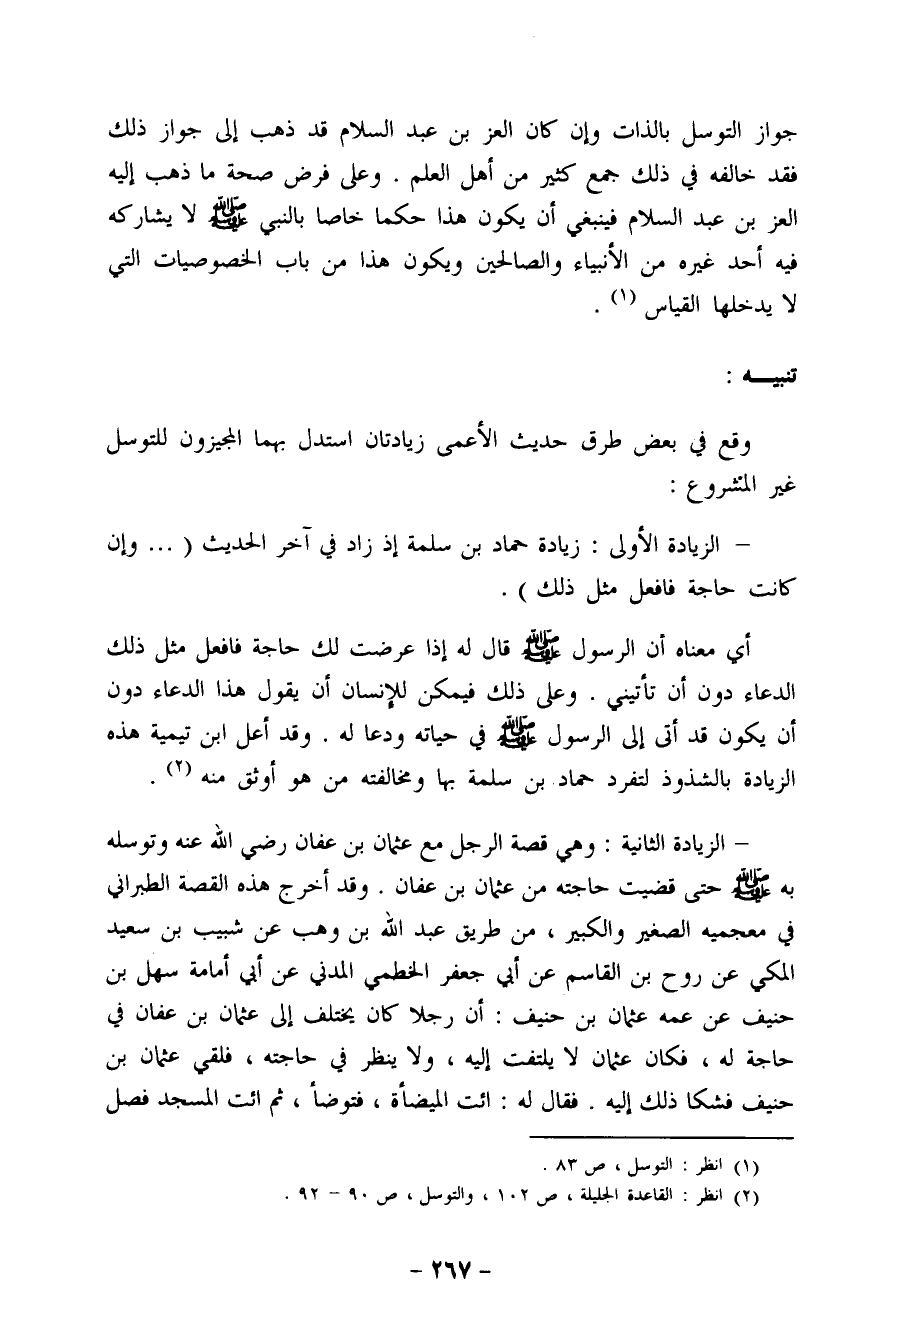 جواز التوسل بالذات وإن كان العز بن عبد السلام قد ذهب إلى جواز ذلك
فقد خالفه في ذلك جمع كثير من أهل العلم . وعلى فرض صحة ما ذهب إليه
العز بن عبد السلام فينبغي أن يكون هذا حكما خاصا بالنبي ﷺ لا يشاركه
فيه أحد غيره من الأنبياء والصالحين ويكون هذا من باب الخصوصيات التي
لا يدخلها القياس (١) .
تنبيـــه :
وقع في بعض طرق حديث الأعمى زيادتان استدل بهما المجيزون للتوسل
غير المشروع :
– الزيادة الأولى : زيادة حماد بن سلمة إذ زاد في آخر الحديث ( ... وإن
كانت حاجة فافعل مثل ذلك ) .
أي معناه أن الرسول ﷺ قال له إذا عرضت لك حاجة فافعل مثل ذلك
الدعاء دون أن تأتيني . وعلى ذلك فيمكن للإنسان أن يقول هذا الدعاء دون
أن يكون قد أتى إلى الرسول ﷺ في حياته ودعا له . وقد أعل ابن تيمية هذه
الزيادة بالشذوذ لتفرد حماد بن سلمة بها ومخالفته من هو أوثق منه (٢) .
– الزيادة الثانية : وهي قصة الرجل مع عثمان بن عفان رضي الله عنه وتوسله
به ﷺ حتى قضيت حاجته من عثمان بن عفان . وقد أخرج هذه القصة الطبراني
في معجميه الصغير والكبير ، من طريق عبد الله بن وهب عن شبيب بن سعيد
المكي عن روح بن القاسم عن أبي جعفر الخطمي المدني عن أبي أمامة سهل بن
حنيف عن عمه عثمان بن حنيف : أن رجلا كان يختلف إلى عثمان بن عفان في
حاجة له ، فكان عثمان لا يلتفت إليه ، ولا ينظر في حاجته ، فلقي عثمان بن
حنيف فشكا ذلك إليه . فقال له : ائت الميضأة ، فتوضأ ، ثم ائت المسجد فصل
(١) انظر : التوسل ، ص ٨٣ .
(٢) انظر : القاعدة الجليلة ، ص ١٠٢ ، والتوسل ، ص ٩٠ – ٩٢ .
- ٢٦٧ -